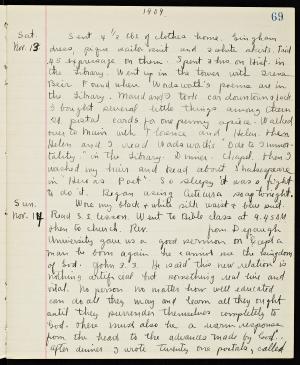 1909
69
Sat. Sent 4 1/2 lbs of clothes home. Gingham
Nov. 13 dress, pique suit and 2 white skirts. Paid
45 expressage on them. Spent 2 hrs on Hist. in
the library. Went up in the tower with Irene
Beir. Found where Wadsworth's poems are in
the library. Maud and I took car downtown
I bought several little things among them
postal cards for one penny apiece. Walked
over to Main with Florence and Helen. Then
Helen and I read Wadsworth's "Ode to Immor-
tality" in the library. Dinner. Chapel. Then I
washed my hair and read about Shakespeare
in "Hero as Poet". So sleepy it was a fight
to do it. Began using Cuticura soap tonight.
Sun. Wore my black & white silk waist & blue suit.
Nov. 14 Read S.S. lesson. Went to Bible class at 9.45 AM
then to church. Rev. from Depaugh
University gave us a good sermon on "Except a
man be born again he cannot see the kingdom
of God". John 3.3. He said this new relation is
nothing artificial but something real fine and
vital. No person no matter how well educated
can do all they may and learn all they ought
until they surrender themselves completely to
God. There must also be a warm response
from the heart to the advances made by God.
After dinner I wrote twenty one postals, called